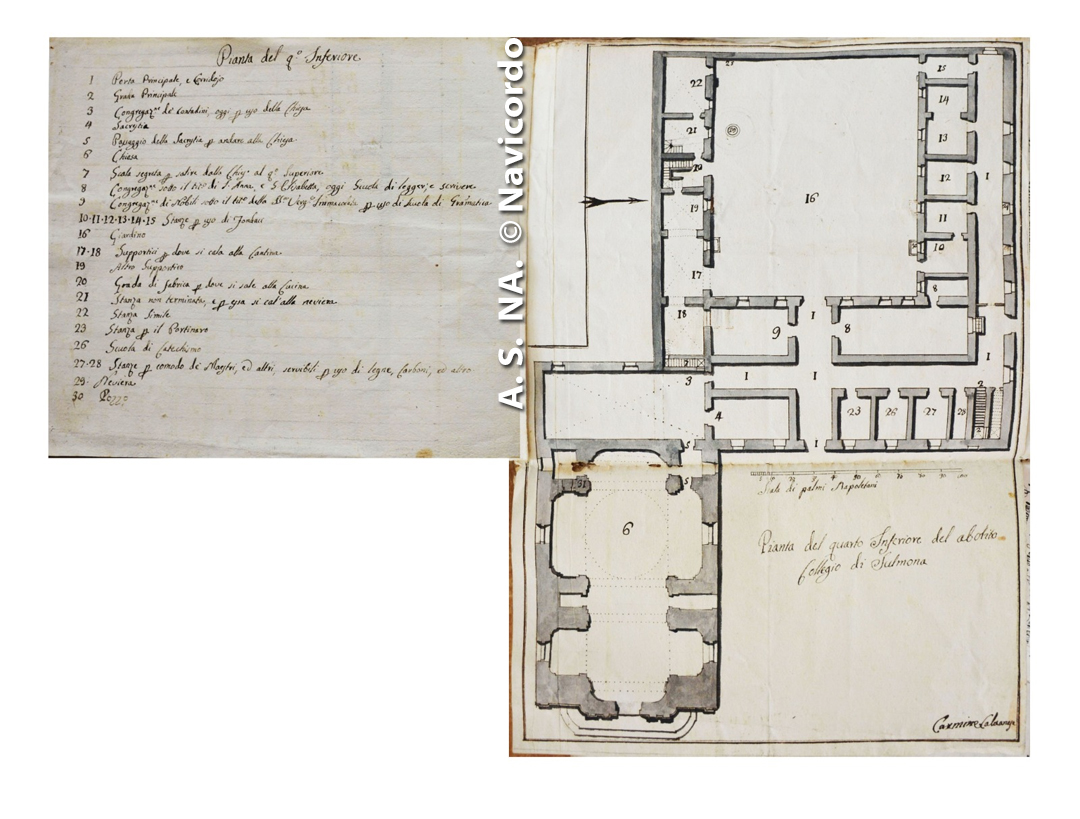 Pianta del q.º Inferiore
1 Porta Principale, e Corridojo
2 Grada Principale
3 Congregaz.ne de' Contadini, oggi p uso della Chiesa
4 Sacrestia
5 Passaggio della Sacrestia p andare alla Chiesa
6 Chiesa
7 Scala segreta p salire dalla Chiesa al q.º Superiore
8 Congregaz.ne sotto il tit.º di S. Anna, e S. Elisabetta, oggi Scuola di legger, e scrivere
9 Congregaz.ne di Nobili sotto il tit.º della SS.ma Verg.e p uso di Scuola di Gramatica
10·11·12·13·14·15 Stanze p uso di
16 Giardino
17·18 Supportici p dove si cala alla Cantina
19 Altro Supportico
20 Grada di fabrica p dove si sale alla Cucina
21 Stanza non terminata, e p essa si cal'alla neviera
22 Stanza simile
23 Stanza p il Portinaro
26 Scuola di Catechismo
27·28 Stanze p comodo de' Maestri, ed altri, servibili p uso di legne, Carboni, ed altro
29 Neviera
30 Pozzo
A. S. NA. © Navicordo
22
21
19
19
17
18
16
15
14
13
12
11
10
8
1
9
1
8
1
3
1
1
2
4
23
26
27
28
5
1
31
5
6
Scala di palmi Napoletani
Pianta del quarto Inferiore del abolito
Collegio di Sulmona
Carmine